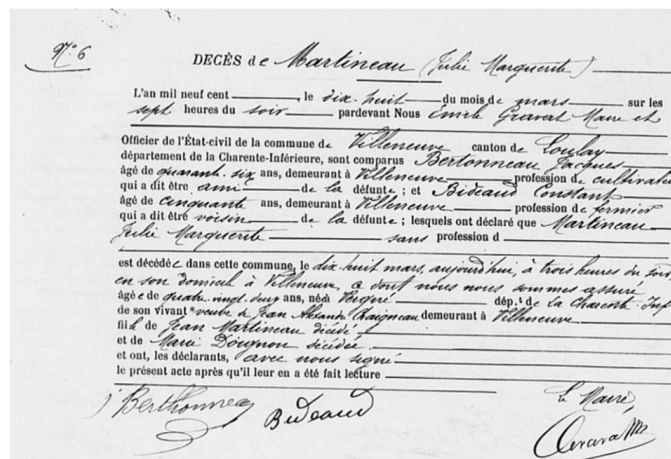 N° 6
DECÈS de Martineau (Julie Marguerite)
L'an mil neuf cent, le dix-huit du mois de mars sur les
sept heures du soir pardevant Nous Emile Gravart Maire et
Officier de l'État-civil de la commune de Villeneuve canton de Loulay
département de la Charente-Inférieure, sont comparus Bertonneau Jacques
âgé de quarante six ans, demeurant à Villeneuve profession de cultivateur
qui a dit être ami de la défunte ; et Bideaud Constant
âgé de cinquante ans, demeurant à Villeneuve profession de fermier
qui a dit voisin de la défunte ; lesquels ont déclaré que Martineau
Julie Marguerite sans profession d
est décédée dans cette commune, le dix huit mars, aujourd'hui, à trois heures du soir
en son domicile à Villeneuve, a dont nous nous sommes assuré
âgée de quatre-vingt-deux ans, née à dép.t de la Charente-Infre
de son vivant veuve de Jean demeurant à Villeneuve
fille de Jean Martineau décédé
et de Marie décédée
et ont, les déclarants, avec nous signé
le présent acte après qu'il leur en a été fait lecture
J Berthonneau
Bideaud
Le Maire,